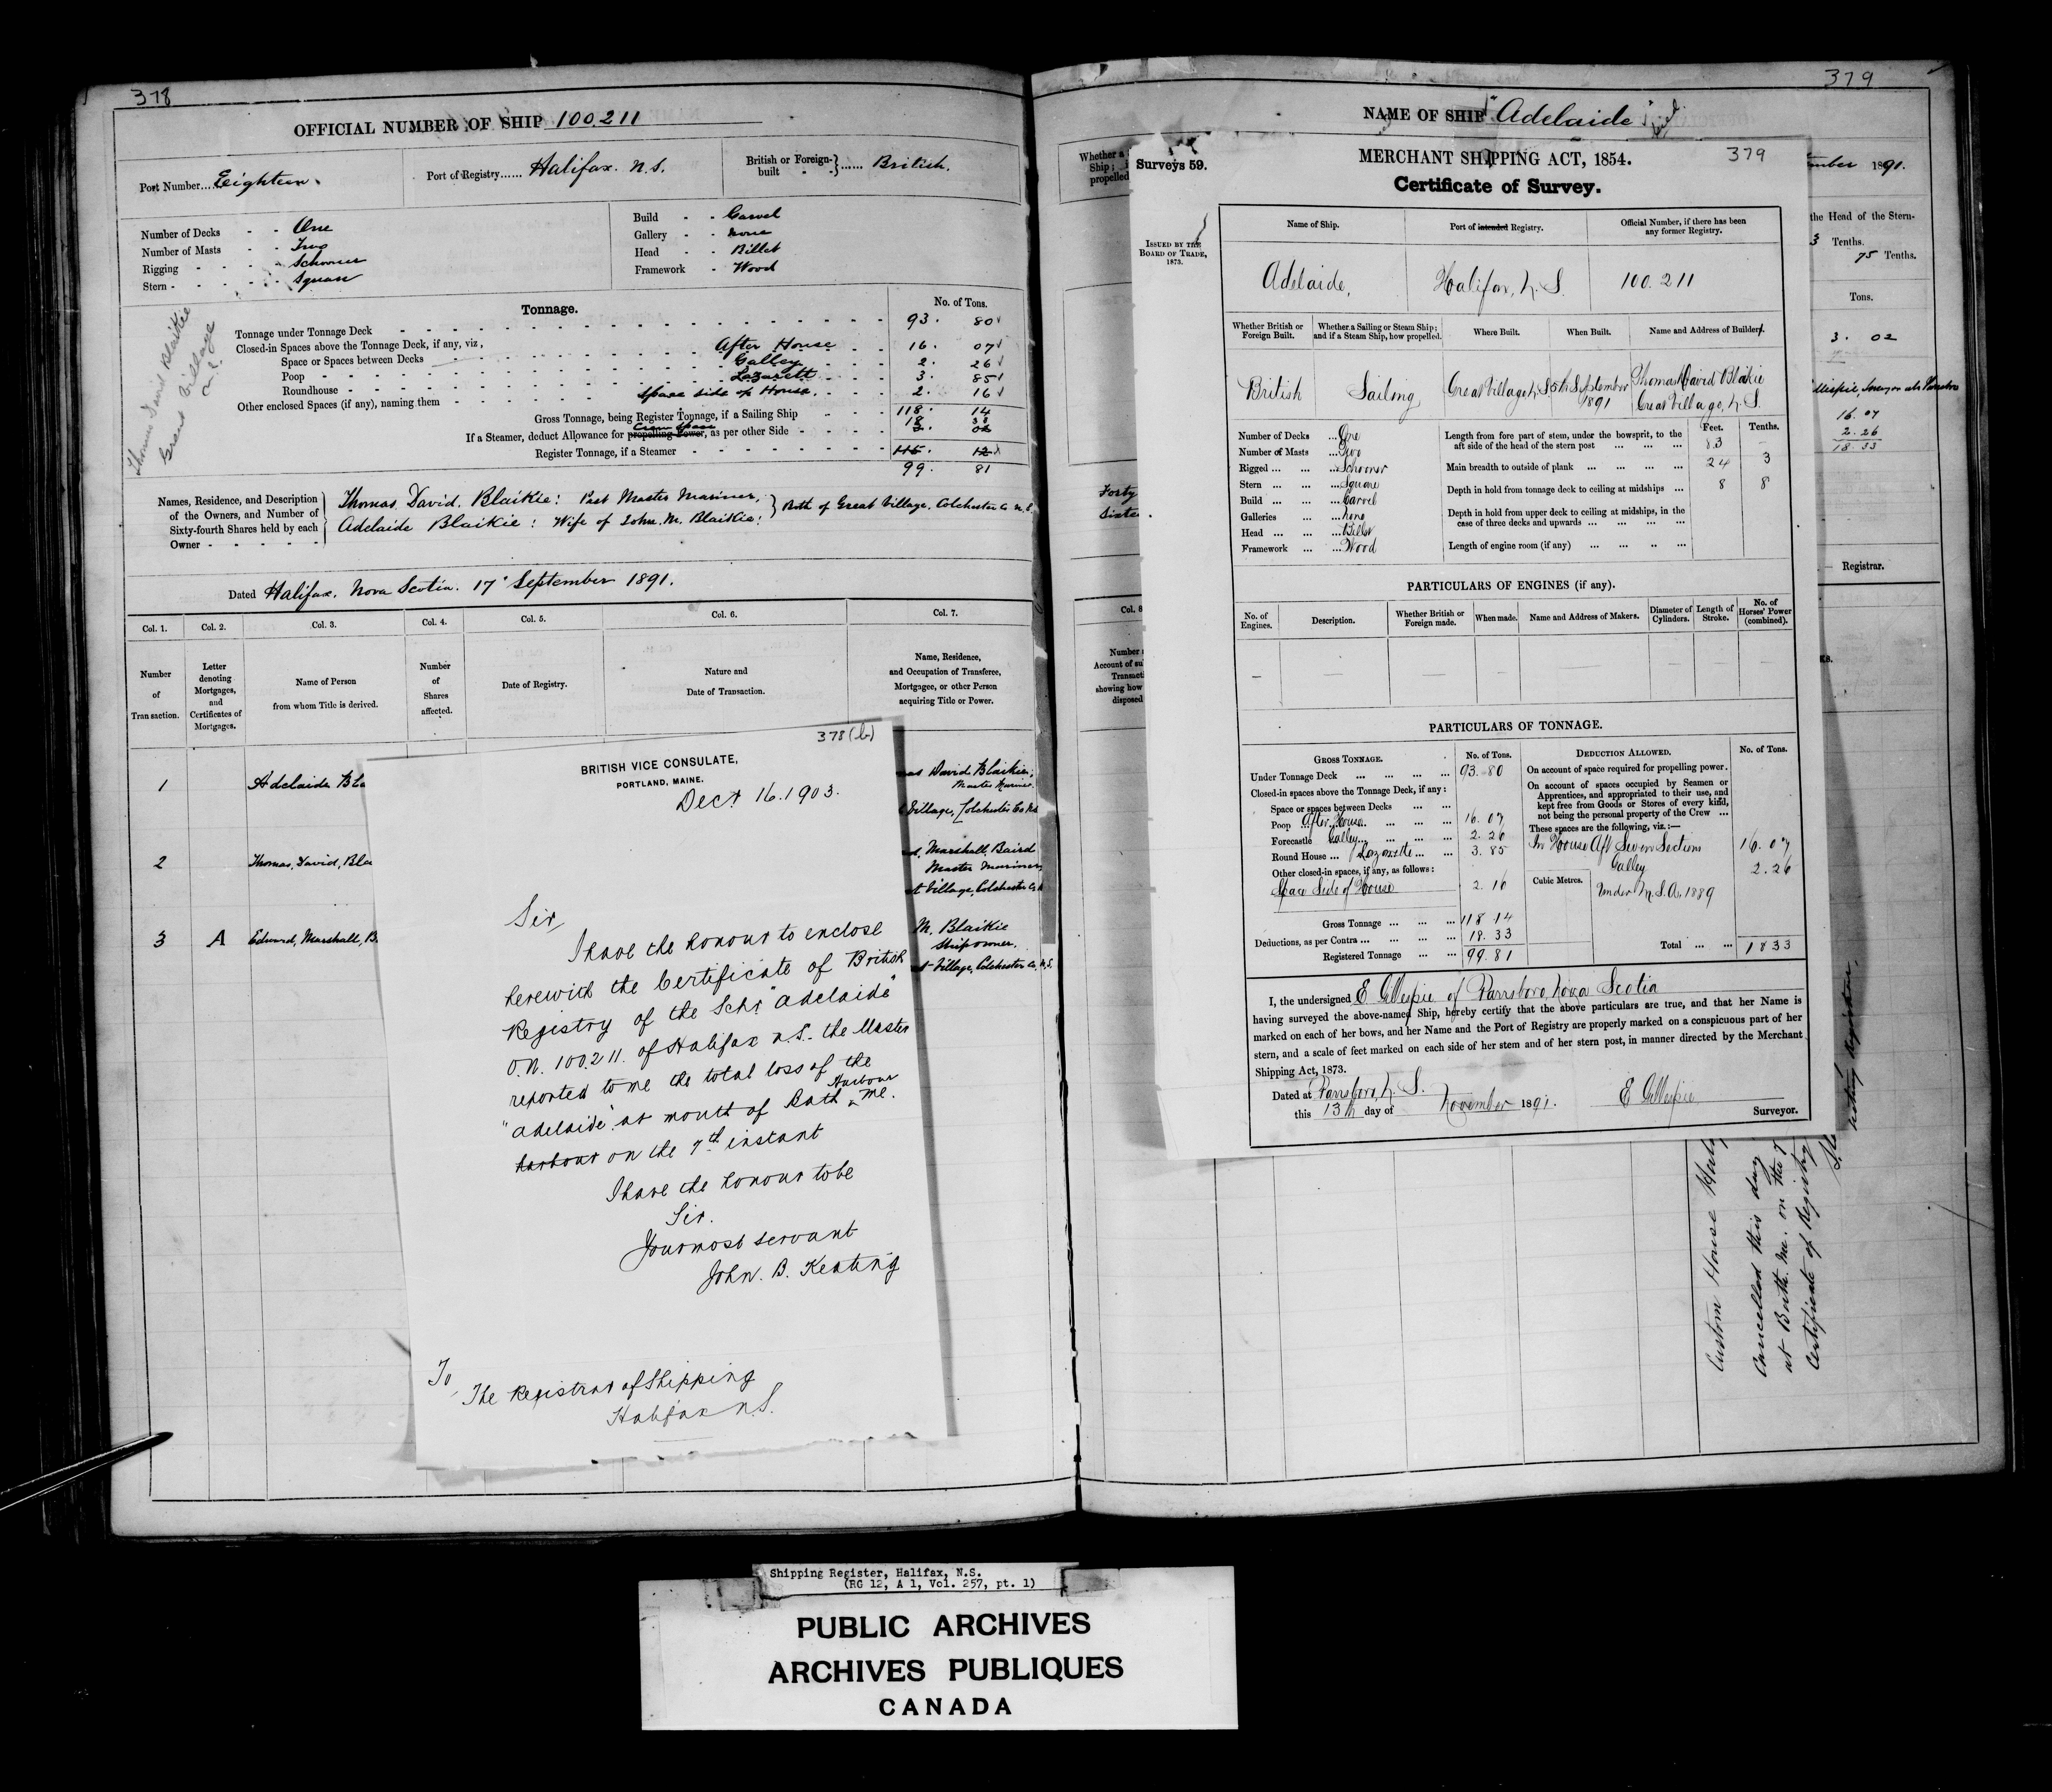 378
OFFICIAL NUMBER OF SHIP 100.211
Port Number....Eighteen.
Port of Registry...... Halifax. N.S.
British or Foreign-built ...... British.
Number of Decks - - One
Number of Masts - - Two
Rigging - - - - Schooner
Stern - - - - - Square
Build - - Carvel
Gallery - - None
Head - - Billet
Framework - Wood
Thomas David Blaikie
Great Village
N.S.
Tonnage.
No. of Tons.
Tonnage under Tonnage Deck 93. 80
Closed-in Spaces above the Tonnage Deck, if any, viz,
After House 16. 07
Space or Spaces between Decks Galley 2. 26
Poop Lazarett 3. 85
Roundhouse Space side of House. 2. 16
Other enclosed Spaces (if any), naming them
Gross Tonnage, being Register Tonnage, if a Sailing Ship 118. 14
Crew Space
If a Steamer, deduct Allowance for propelling Power, as per other Side
Register Tonnage, if a Steamer 115. 12
99. 81
Names, Residence, and Description of the Owners, and Number of Sixty-fourth Shares held by each Owner
Thomas, David, Blaikie: Master Mariner,
Adelaide Blaikie: Wife of John, M. Blaikie:
Both of Great Village, Colchester Co N.S.
Dated Halifax. Nova Scotia. 17' September 1891.
Col. 1. Col. 2. Col. 3. Col. 4. Col. 5. Col. 6. Col. 7.
Number of Transaction.
Letter denoting Mortgages, and Certificates of Mortgages.
Name of Person from whom Title is derived.
Number of Shares affected.
Date of Registry.
Nature and Date of Transaction.
Name, Residence, and Occupation of Transferee, Mortgagee, or other Person acquiring Title or Power.
1 Adelaide Bla
David Blaikie,
Master Mariner
Village, Colchester Co N.S.
2 Thomas, David, Bla
Marshall, Baird
Master Mariner
Village, Colchester Co
3 A Edward, Marshall, B.
M. Blaikie
Ship owner.
Village, Colchester Co. N.S.
378(b)
BRITISH VICE CONSULATE,
PORTLAND, MAINE.
Decr 16. 1903.
Sir,
I have the honour to enclose
herewith the Certificate of British
Registry of the Schr "Adelaide"
O.N. 100.211. of Halifax N.S. the Master
reported to me the total loss of the
"Adelaide" at mouth of Bath Harbour Me.
harbour on the 7th instant
I have the honour to be
Sir.
Your most servant
John. B. Keating
To,
The Registrar of Shipping
Halifax N.S.
379
NAME OF SHIP "Adelaide"
Whether a
Ship;
propelled
Forty
Sixtee
Col. 8
Number
Account of su
Transacti
showing how
disposed
mber 1891.
the Head of the Stern-
3 Tenths.
75 Tenths.
Tons.
3. 02
16. 07
2. 26
18. 33
Registrar.
Surveys 59.
ISSUED BY THE
BOARD OF TRADE,
1873.
379
MERCHANT SHIPPING ACT, 1854.
Certificate of Survey.
Name of Ship.
Port of intended Registry.
Official Number, if there has been any former Registry.
Adelaide,
Halifax, N.S.
100.211
Whether British or Foreign Built.
Whether a Sailing or Steam Ship; and if a Steam Ship, how propelled.
Where Built.
When Built.
Name and Address of Builders.
British
Sailing
Great Village N.S.
5th September 1891
Thomas David Blaikie
Great Village, N.S.
Number of Decks ...One
Number of Masts ...Two
Rigged ... ... ...Schooner
Stern ... ... ...Square
Build ... ... ...Carvel
Galleries ... ...None
Head ... ... ...Billet
Framework ... ...Wood
Feet. Tenths.
Length from fore part of stem, under the bowsprit, to the aft side of the head of the stern post 83 –
Main breadth to outside of plank 24 3
Depth in hold from tonnage deck to ceiling at midships 8 8
Depth in hold from upper deck to ceiling at midships, in the case of three decks and upwards
Length of engine room (if any)
PARTICULARS OF ENGINES (if any).
No. of Engines.
Description.
Whether British or Foreign made.
When made.
Name and Address of Makers.
Diameter of Cylinders.
Length of Stroke.
No. of Horses' Power (combined).
PARTICULARS OF TONNAGE.
GROSS TONNAGE. No. of Tons.
Under Tonnage Deck 93. 80
Closed-in spaces above the Tonnage Deck, if any:
Space or spaces between Decks
Poop After House 16. 07
Forecastle Galley 2. 26
Round House Lazarette 3. 85
Other closed-in spaces, if any, as follows:
Space Side of House 2. 16
Gross Tonnage 118 .14
Deductions, as per Contra 18. 33
Registered Tonnage 99. 81
DEDUCTION ALLOWED. No. of Tons.
On account of space required for propelling power.
On account of spaces occupied by Seamen or Apprentices, and appropriated to their use, and kept free from Goods or Stores of every kind, not being the personal property of the Crew ...
These spaces are the following, viz.:—
In House Aft Seven Sections 16. 07
Galley 2. 26
Cubic Metres.
Under M.S.A. 1889
Total 18 33
I, the undersigned E Gillespie of Parrsboro, Nova Scotia
having surveyed the above-named Ship, hereby certify that the above particulars are true, and that her Name is
marked on each of her bows, and her Name and the Port of Registry are properly marked on a conspicuous part of her
stern, and a scale of feet marked on each side of her stem and of her stern post, in manner directed by the Merchant
Shipping Act, 1873.
Dated at Parrsboro, N.S.
this 13th day of November 1891. E Gillespie
Surveyor.
Custom House Halif
Cancelled this day
at Bath. Me. on the 7
Certificate of Registry
Shipping Register, Halifax, N.S.
(RG 12, A 1, Vol. 257, pt. 1)
PUBLIC ARCHIVES
ARCHIVES PUBLIQUES
CANADA